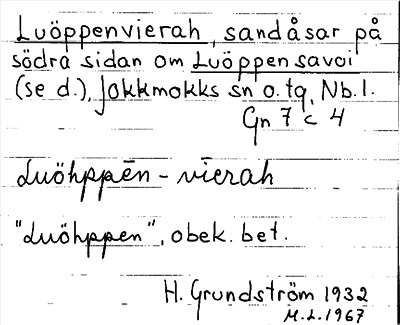 Luöppenvierah, sandåsar på
södra sidan om Luöppensavoi
(se d.), Jokkmokks sn o. tg, Nb. l.
Gn 7 c 4
Luöhppēn - vīerah
"Luöhppen", obek. bet.
H. Grundström 1932
M.L. 1967